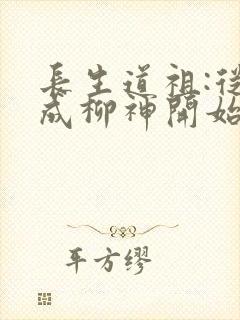 長生道祖:從
成柳神開始
平方缪